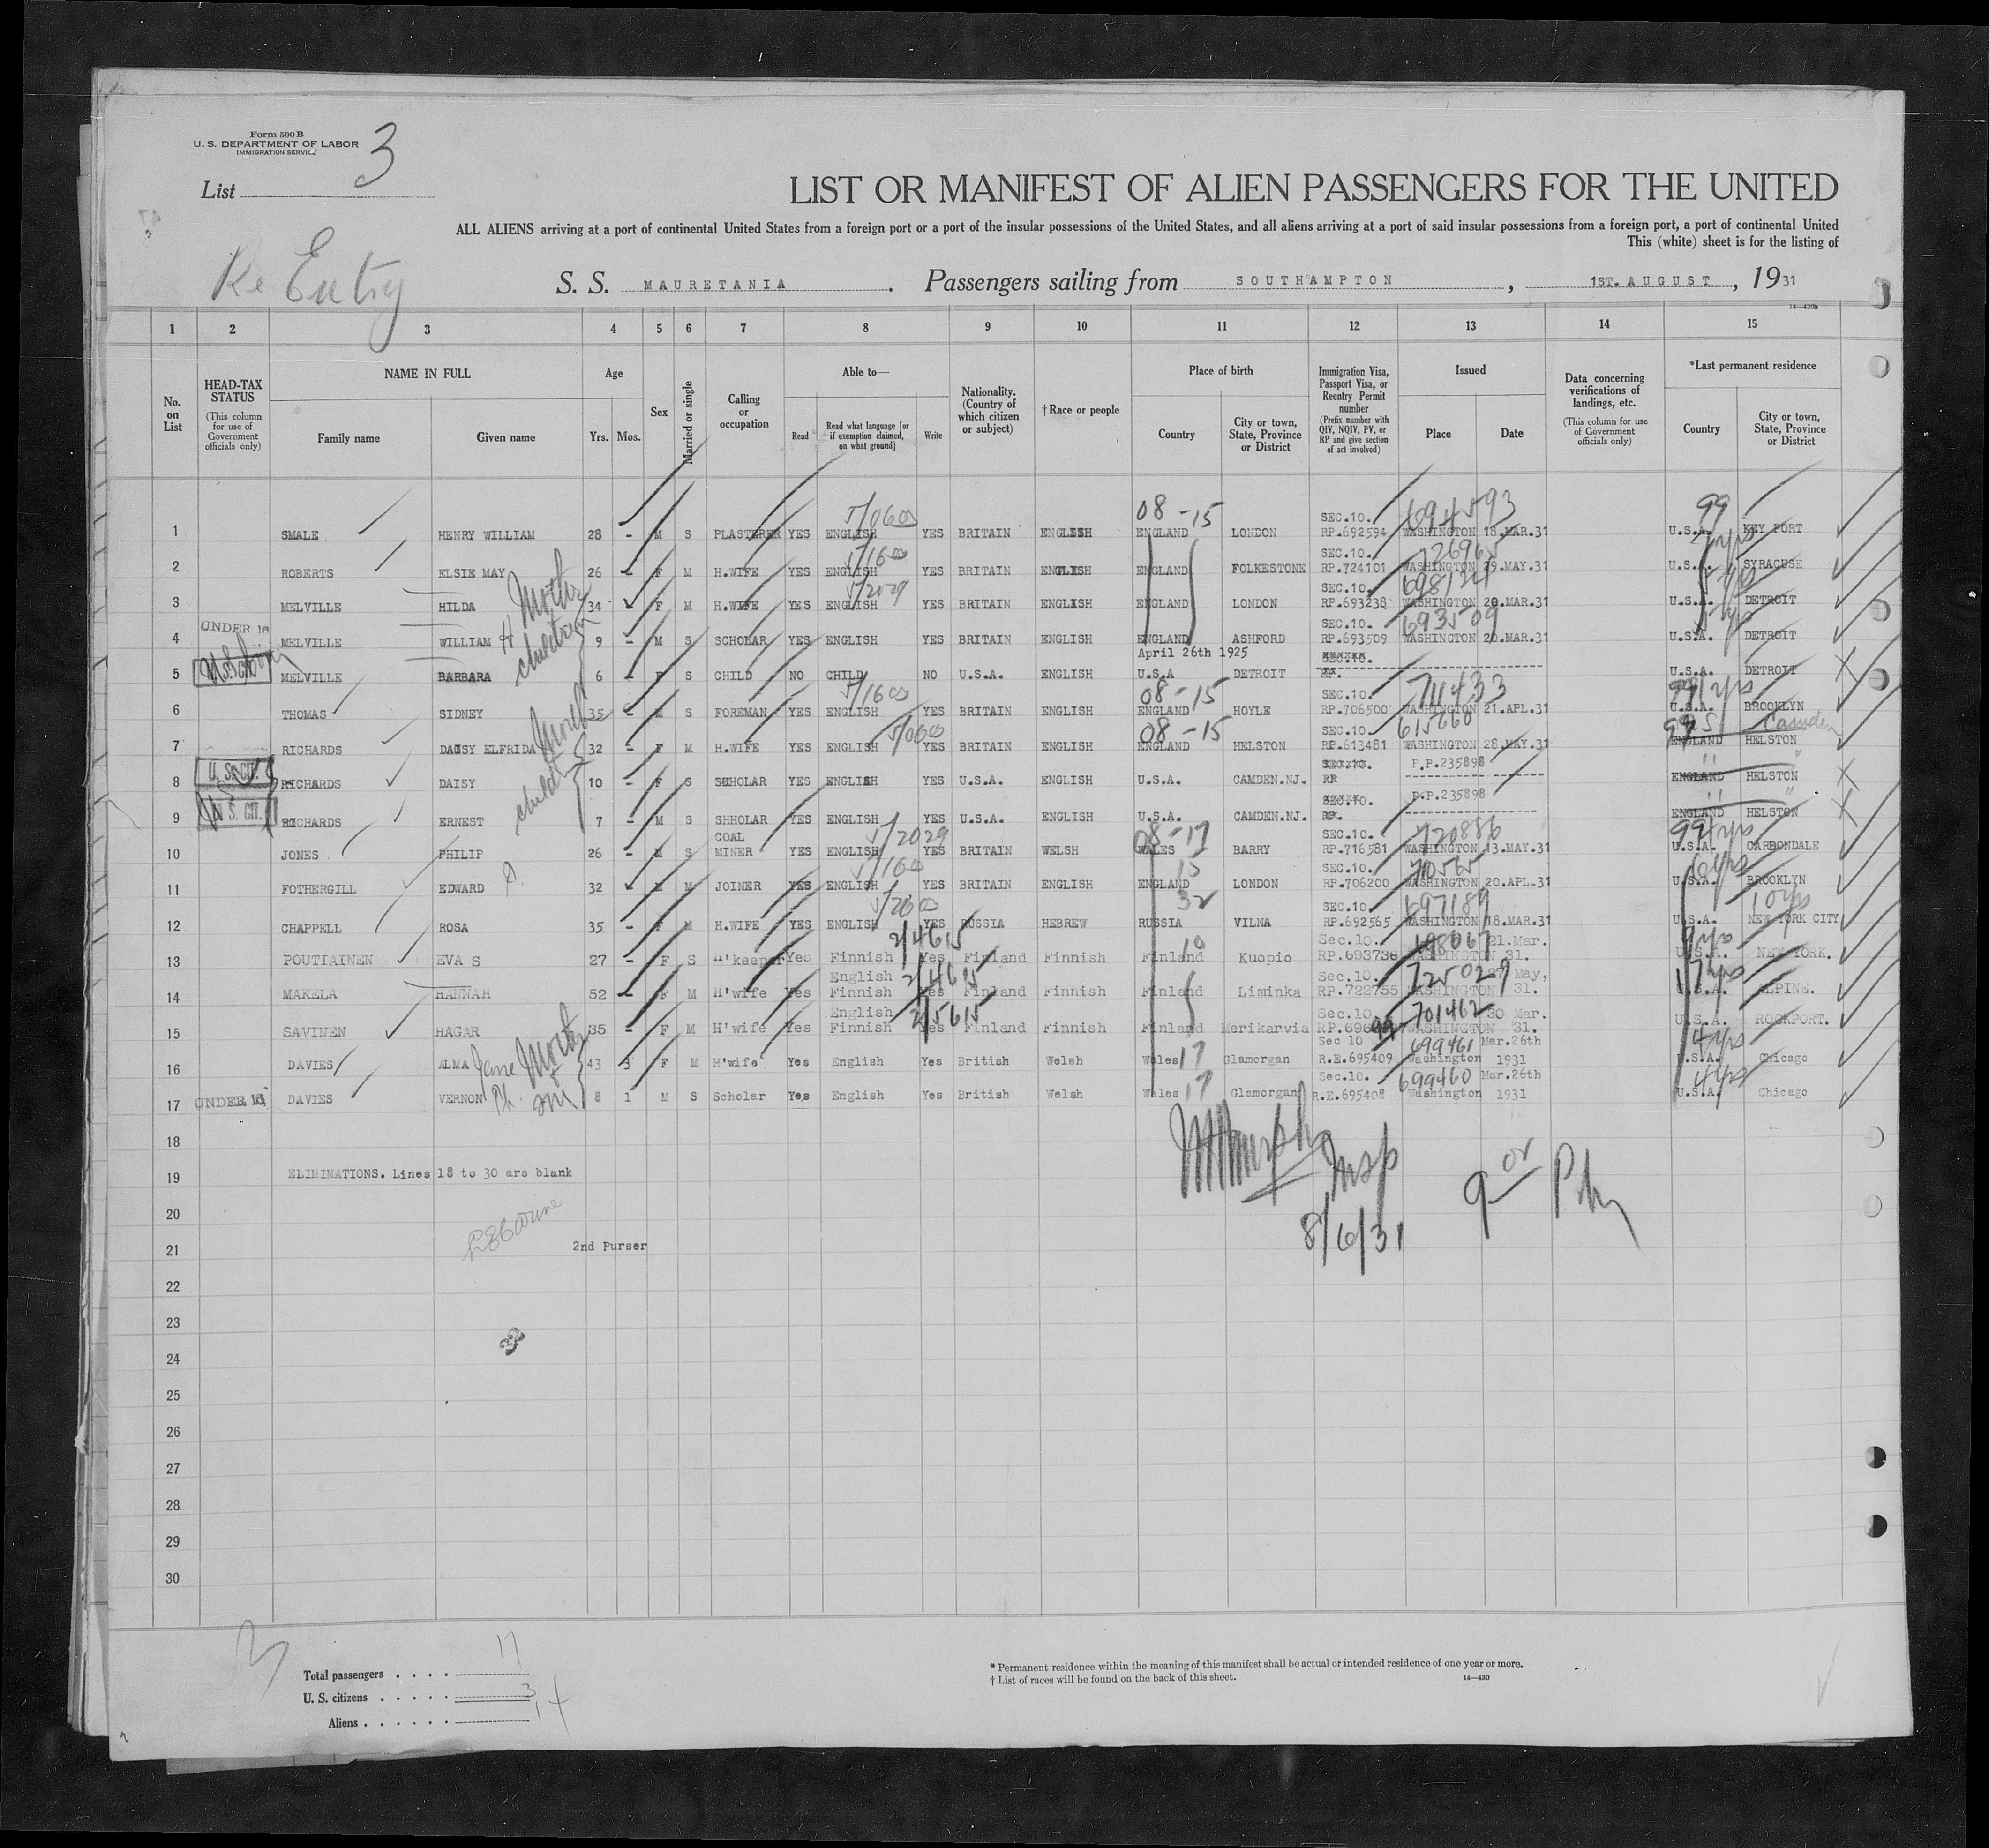 Form 500 B
U. S. DEPARTMENT OF LABOR
IMMIGRATION SERVICE
List 3
LIST OR MANIFEST OF ALIEN PASSENGERS FOR THE UNITED
ALL ALIENS arriving at a port of continental United States from a foreign port or a port of the insular possessions of the United States, and all aliens arriving at a port of said insular possessions from a foreign port, a port of continental United
This (white) sheet is for the listing of
Re Entry
S. S. MAURETANIA. Passengers sailing from SOUTHAMPTON, 1ST. AUGUST, 1931
14—420b
1 2 3 4 5 6 7 8 9 10 11 12 13 14 15
No. on List
HEAD-TAX STATUS (This column for use of Government officials only)
NAME IN FULL Family name Given name
Age Yrs. Mos.
Sex
Married or single
Calling or occupation
Able to— Read Read what language [or if exemption claimed, on what ground] Write
Nationality. (Country of which citizen or subject)
†Race or people
Place of birth Country City or town, State, Province or District
Immigration Visa, Passport Visa, or Reentry Permit number (Prefix number with QIV, NQIV, PV, or RP and give section of act involved)
Issued Place Date
Data concerning verifications of landings, etc. (This column for use of Government officials only)
*Last permanent residence Country City or town, State, Province or District
08-15 694593 99
1 SMALE HENRY WILLIAM 28 - M S PLASTERER YES ENGLISH YES BRITAIN ENGLISH ENGLAND LONDON SEC.10. RP.692594 WASHINGTON 18.MAR.31 U.S.A. KEY PORT
2 ROBERTS ELSIE MAY 26 - F M H.WIFE YES ENGLISH YES BRITAIN ENGLISH ENGLAND FOLKESTONE SEC.10. RP.724101 WASHINGTON 29.MAY.31 U.S.A. SYRACUSE
3 MELVILLE HILDA Mother 34 F M H.WIFE YES ENGLISH YES BRITAIN ENGLISH ENGLAND LONDON SEC.10. RP.693238 WASHINGTON 20.MAR.31 U.S.A. DETROIT
693509
4 UNDER 16 MELVILLE WILLIAM H children 9 - M S SCHOLAR YES ENGLISH YES BRITAIN ENGLISH ENGLAND ASHFORD SEC.10. RP.693509 WASHINGTON 20.MAR.31 U.S.A. DETROIT
April 26th 1925
5 MELVILLE BARBARA 6 - F S CHILD NO CHILD NO U.S.A. ENGLISH U.S.A DETROIT SEC.10. U.S.A. DETROIT
08-15 711433
6 THOMAS SIDNEY 35 - M S FOREMAN YES ENGLISH YES BRITAIN ENGLISH ENGLAND HOYLE SEC.10. RP.706500 WASHINGTON 21.APL.31 U.S.A. BROOKLYN
08-15 615660 99 Camden
7 RICHARDS DAISY ELFRIDA Mother 32 - F M H.WIFE YES ENGLISH YES BRITAIN ENGLISH ENGLAND HELSTON RP.613481 WASHINGTON 28.MAY.31 ENGLAND HELSTON
8 U.S.CIT. RICHARDS DAISY children 10 - F S SCHOLAR YES ENGLISH YES U.S.A. ENGLISH U.S.A. CAMDEN.NJ. P.P.235898 ENGLAND HELSTON
9 U.S. CIT. RICHARDS ERNEST 7 - M S SHHOLAR YES ENGLISH YES U.S.A. ENGLISH U.S.A. CAMDEN.NJ. SEC.10. P.P.235898 ENGLAND HELSTON
08-17 720886 99 4yrs
10 JONES PHILIP 26 - M S COAL MINER YES ENGLISH YES BRITAIN WELSH WALES BARRY SEC.10. RP.716581 WASHINGTON 13.MAY.31 U.S.A. CARBONDALE
15 710565
11 FOTHERGILL EDWARD 32 M M JOINER YES ENGLISH YES BRITAIN ENGLISH ENGLAND LONDON SEC.10. RP.706200 WASHINGTON 20.APL.31 U.S.A. BROOKLYN
32 697189 10yrs
12 CHAPPELL ROSA 35 - F M H.WIFE YES ENGLISH YES RUSSIA HEBREW RUSSIA VILNA SEC.10. RP.692565 WASHINGTON 18.MAR.31 U.S.A. NEW YORK CITY
13 POUTIAINEN EVA S 27 - F S H'keeper Yes Finnish Yes Finland Finnish Finland Kuopio Sec.10. RP.693736 WASHINGTON 21.Mar. 31. U.S.A. NEW YORK.
725029
14 MAKELA HANNAH 52 - F M H'wife Yes English Finnish Yes Finland Finnish Finland Liminka Sec.10. RP.722755 WASHINGTON May, 31. U.S.A. ALPINE.
701462
15 SAVINEN HAGAR 35 - F M H'wife Yes English Finnish Yes Finland Finnish Finland Merikarvia Sec.10. WASHINGTON 30 Mar. 31. U.S.A. ROCKPORT.
699461 4yrs
16 DAVIES ALMA Jane Mother 43 3 F M H'wife Yes English Yes British Welsh Wales 17 Glamorgan Sec 10 R.E.695409 Washington Mar.26th 1931 U.S.A. Chicago
699460 4yrs
17 UNDER 16 DAVIES VERNON Ph. son 8 1 M S Scholar Yes English Yes British Welsh Wales 17 Glamorgan Sec.10. R.E.695408 Washington Mar.26th 1931 U.S.A. Chicago
18
19 ELIMINATIONS. Lines 18 to 30 are blank
Insp
8/6/31
20
21 2nd Purser
22
23
24
25
26
27
28
29
30
Total passengers . . . . 17
U. S. citizens . . . . . 3
Aliens . . . . . . 14
* Permanent residence within the meaning of this manifest shall be actual or intended residence of one year or more.
† List of races will be found on the back of this sheet. 14—430